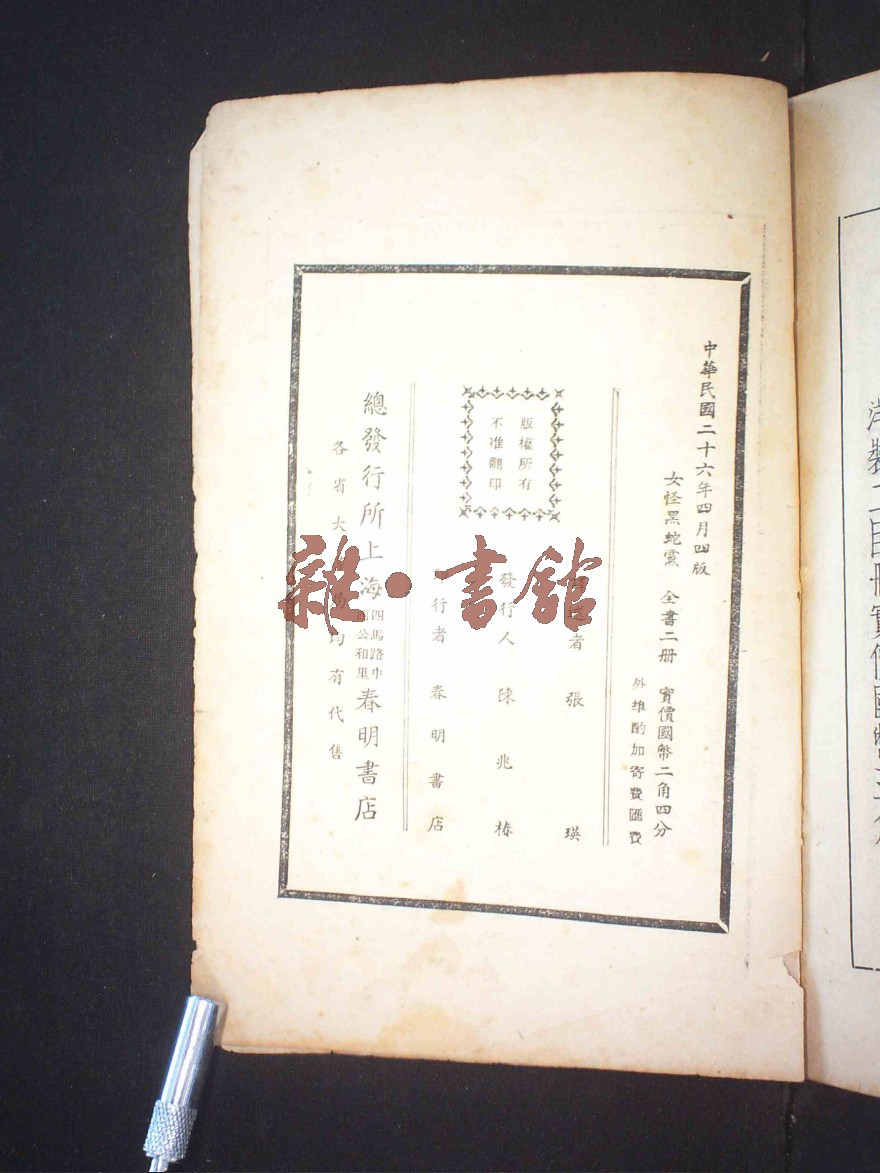 中華民國二十六年四月四版
女怪黑蛇黨 全書二册 實價國幣二角四分
外埠酌加寄費匯費
版權所有
不准翻印
者 張 瑛
發行人 陳兆椿
行者 春明書店
總發行所上海
四馬路中
公和里
春明書店
各省大 均有代售
雜·書館